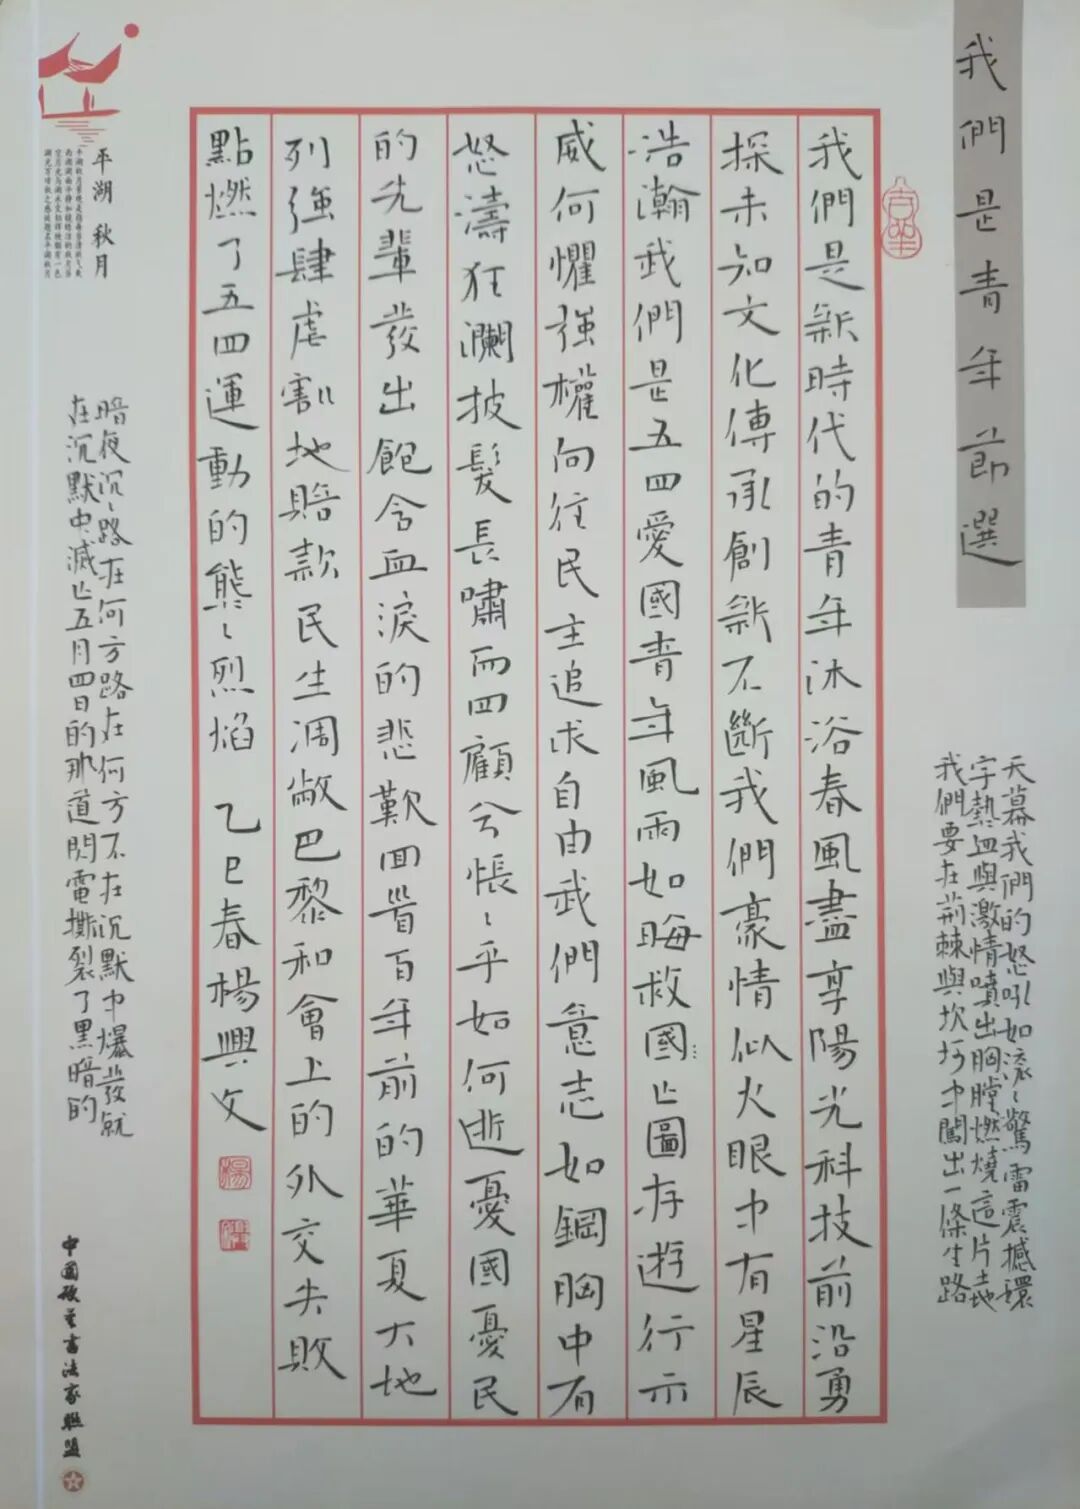 我們是青年節選
我們是新時代的青年沐浴春風盡享陽光科技前沿勇
探未知文化傳承創新不斷我們豪情似火眼中有星辰
浩瀚我們是五四愛國青年風雨如晦救國亡圖存遊行示
威何懼強權向往民主追求自由我們意志如鋼胸中有
怒濤狂瀾披髮長嘯而四顧兮悵〻乎如何逝憂國憂民
的先輩發出飽含血淚的悲歎回首百年前的華夏大地
列強肆虐割地賠款民生凋敝巴黎和會上的外交失敗
點燃了五四運動的熊〻烈焰 乙巳春楊興文
天幕我們的怒吼如滚〻驚雷震撼環
宇熱血與激情噴出胸膛燃燒這片土地
我們要在荊棘與坎坷中闖出一條生路
暗夜沉〻路在何方路在何方不在沉默中爆發就
在沉默中滅亡五月四日的那道閃電撕裂了黑暗的
平湖 秋月
中國硬筆書法家聯盟
楊